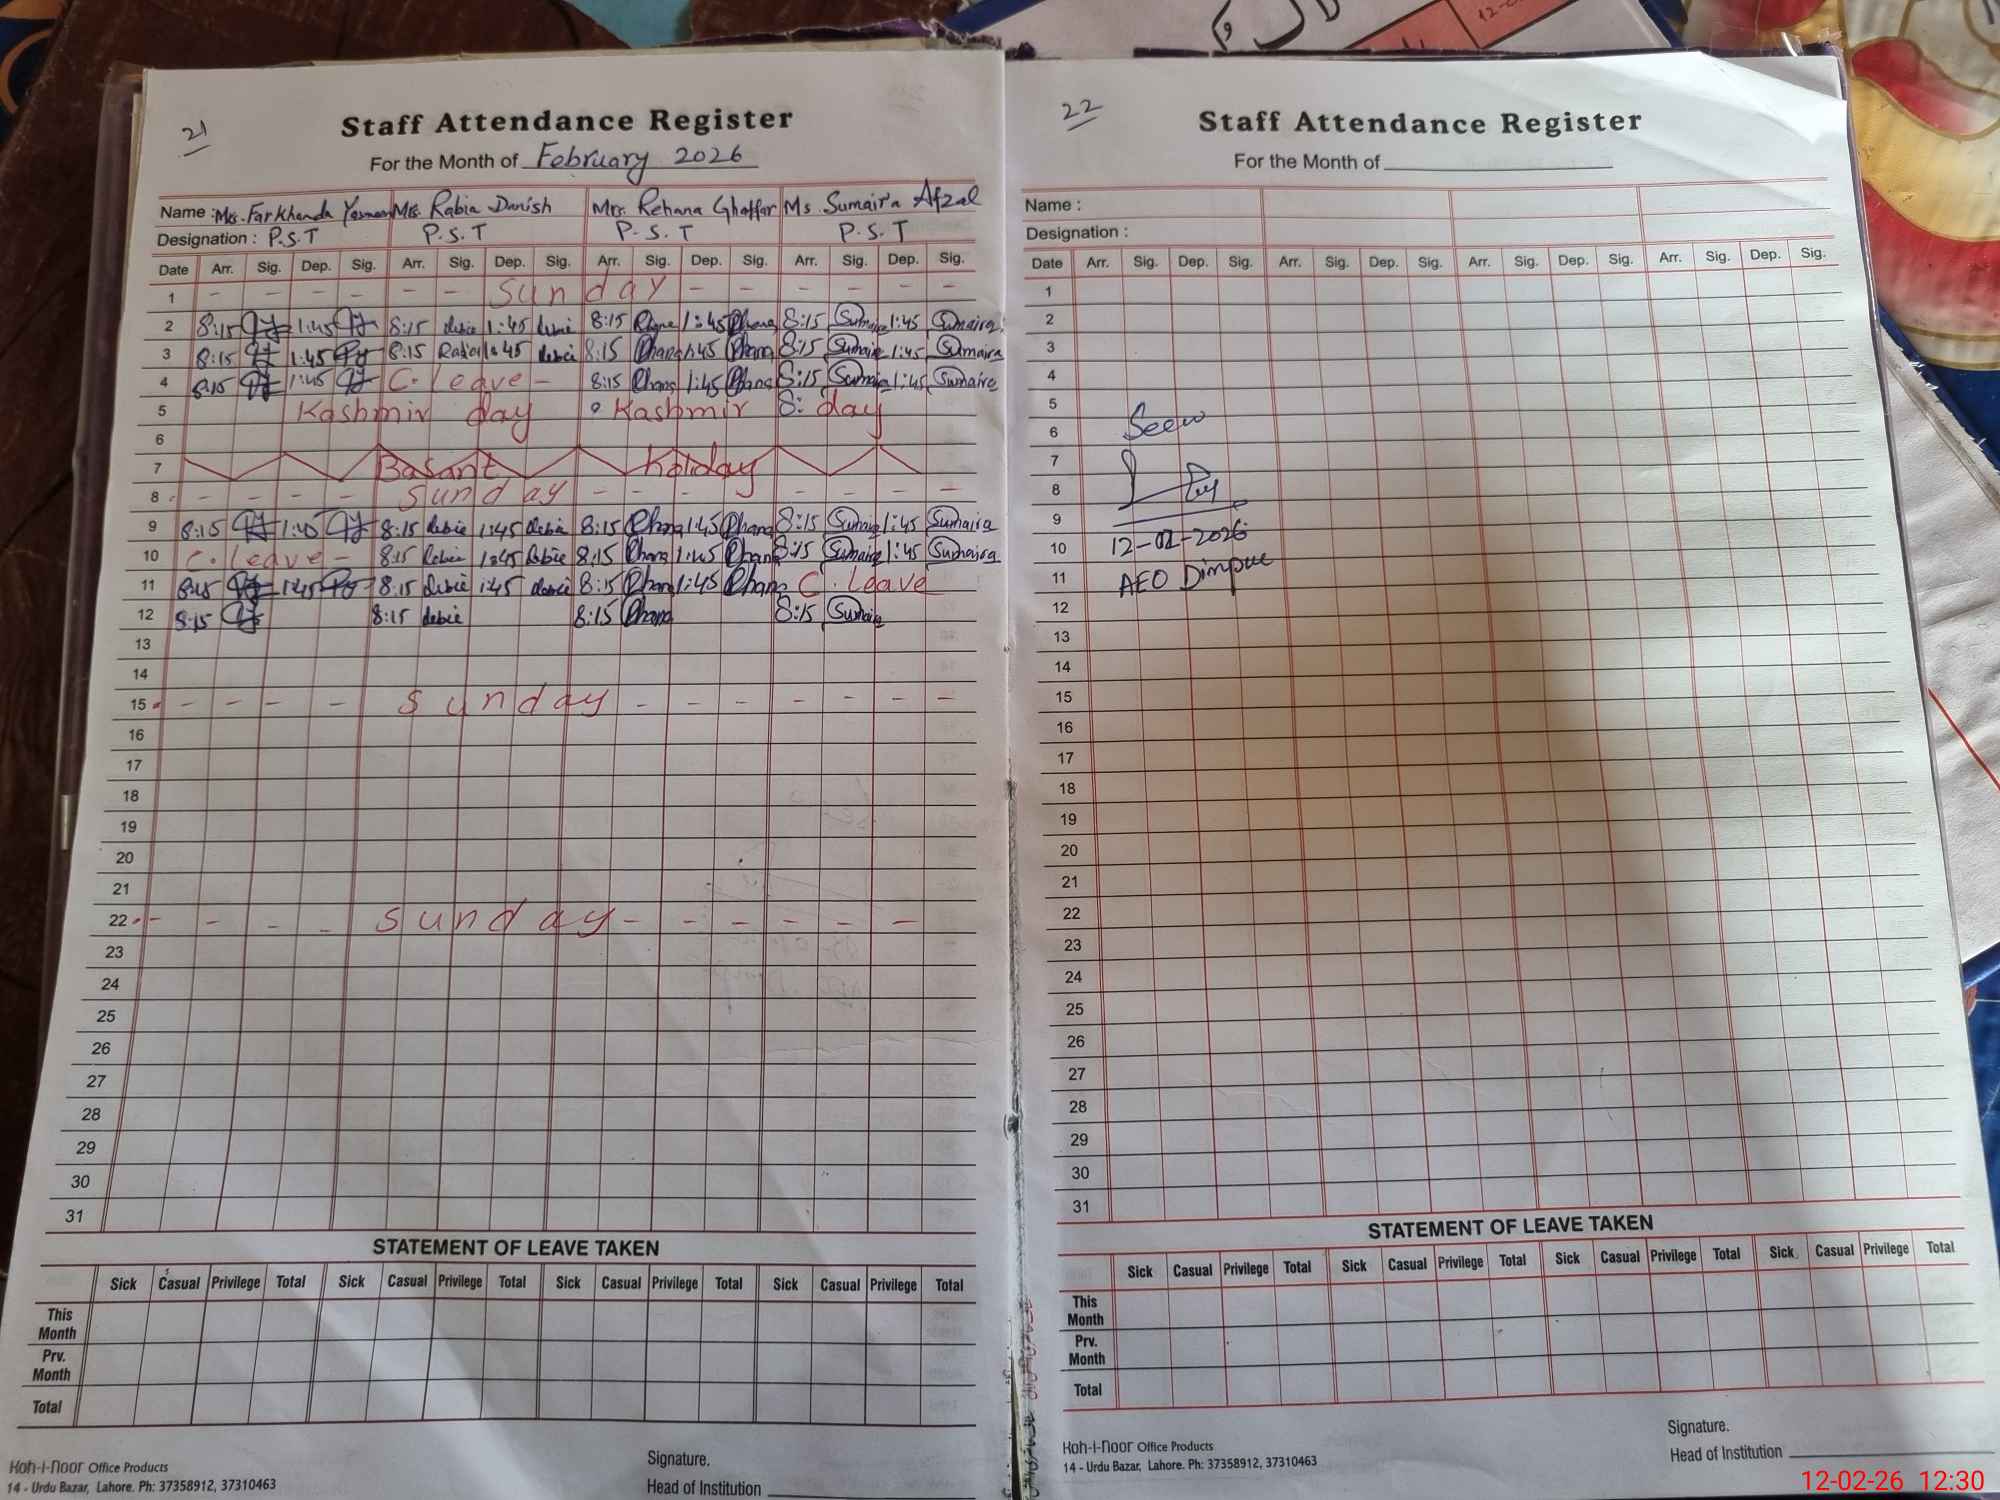 21
Staff Attendance Register
For the Month of February 2026
Name : Mrs. Farkhanda Yasmeen Mrs. Rabia Danish Mrs. Rehana Ghaffar Ms Sumaira Afzal
Designation : P.S.T P.S.T P.S.T P.S.T
Date Arr. Sig. Dep. Sig. Arr. Sig. Dep. Sig. Arr. Sig. Dep. Sig. Arr. Sig. Dep. Sig.
1 - - - - - - Sunday - - - - - -
2 8:15 1:45 8:15 1:45 8:15 1:45 8:15 Sumaira 1:45 Sumaira
3 8:15 1:45 8:15 Rabia 1:45 8:15 1:45 8:15 Sumaira 1:45 Sumaira
4 8:15 1:45 C. leave - 8:15 1:45 8:15 Sumaira 1:45 Sumaira
5 Kashmir day Kashmir 8: day
6
7 Basant Holiday
8 - - - - Sunday - - - - - - -
9 8:15 8:15 1:45 8:15 1:45 8:15 Sumaira 1:45 Sumaira
10 C. leave - 8:15 1:45 8:15 1:45 8:15 Sumaira 1:45 Sumaira
11 8:15 1:45 8:15 1:45 8:15 1:45 C. leave
12 8:15 8:15 8:15 8:15 Sumaira
13
14
15 - - - - Sunday - - - - - -
16
17
18
19
20
21
22 - - - - Sunday - - - - - -
23
24
25
26
27
28
29
30
31
STATEMENT OF LEAVE TAKEN
Sick Casual Privilege Total Sick Casual Privilege Total Sick Casual Privilege Total Sick Casual Privilege Total
This Month
Prv. Month
Total
Koh-I-Noor Office Products
14 - Urdu Bazar, Lahore. Ph: 37358912, 37310463
Signature.
Head of Institution
22
Staff Attendance Register
For the Month of
Name :
Designation :
Date Arr. Sig. Dep. Sig. Arr. Sig. Dep. Sig. Arr. Sig. Dep. Sig. Arr. Sig. Dep. Sig.
1
2
3
4
5
6 Seen
7
8
9
10 12-02-2026
11 AEO
12
13
14
15
16
17
18
19
20
21
22
23
24
25
26
27
28
29
30
31
STATEMENT OF LEAVE TAKEN
Sick Casual Privilege Total Sick Casual Privilege Total Sick Casual Privilege Total Sick Casual Privilege Total
This Month
Prv. Month
Total
Koh-I-Noor Office Products
14 - Urdu Bazar, Lahore. Ph: 37358912, 37310463
Signature.
Head of Institution
12-02-26 12:30